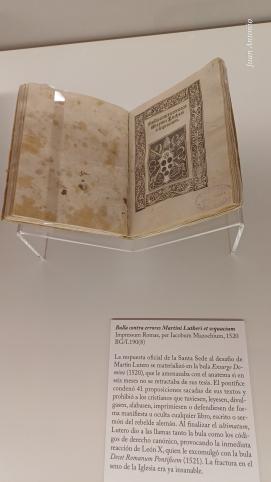 Juan Antonio
Bulla contra errores
Martini Lutheri
et sequacium.
Bulla contra errores Martini Lutheri et sequacium
Impressum Romae, per Iacobum Mazochium, 1520
BG/I.190(8)
La respuesta oficial de la Santa Sede al desafío de
Martín Lutero se materializó en la bula Exsurge Do-
mine (1520), que le amenazaba con el anatema si en
seis meses no se retractaba de sus tesis. El pontífice
condenó 41 proposiciones sacadas de sus textos y
prohibió a los cristianos que tuviesen, leyesen, divul-
gasen, alabasen, imprimiesen o defendiesen de for-
ma manifiesta u oculta cualquier libro, escrito o ser-
món del rebelde alemán. Al finalizar el ultimatum,
Lutero dio a las llamas tanto la bula como los códi-
gos de derecho canónico, provocando la inmediata
reacción de León X, quien le excomulgó con la bula
Decet Romanum Pontificem (1521). La fractura en el
seno de la Iglesia era ya insalvable.